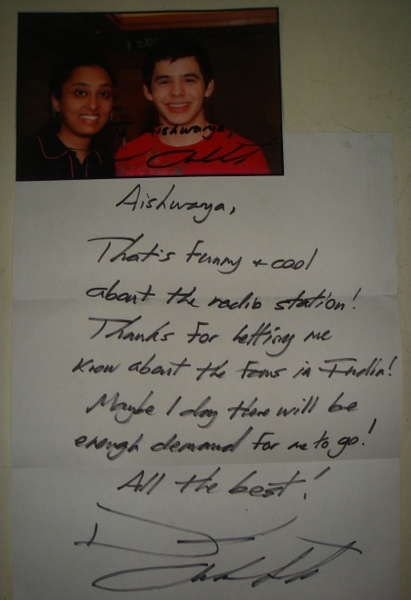 To Aishwarya,
Aishwarya,
That's funny + cool
about the radio station!
Thanks for letting me
know about the fans in India!
Maybe 1 day there will be
enough demand for me to go!
All the best!